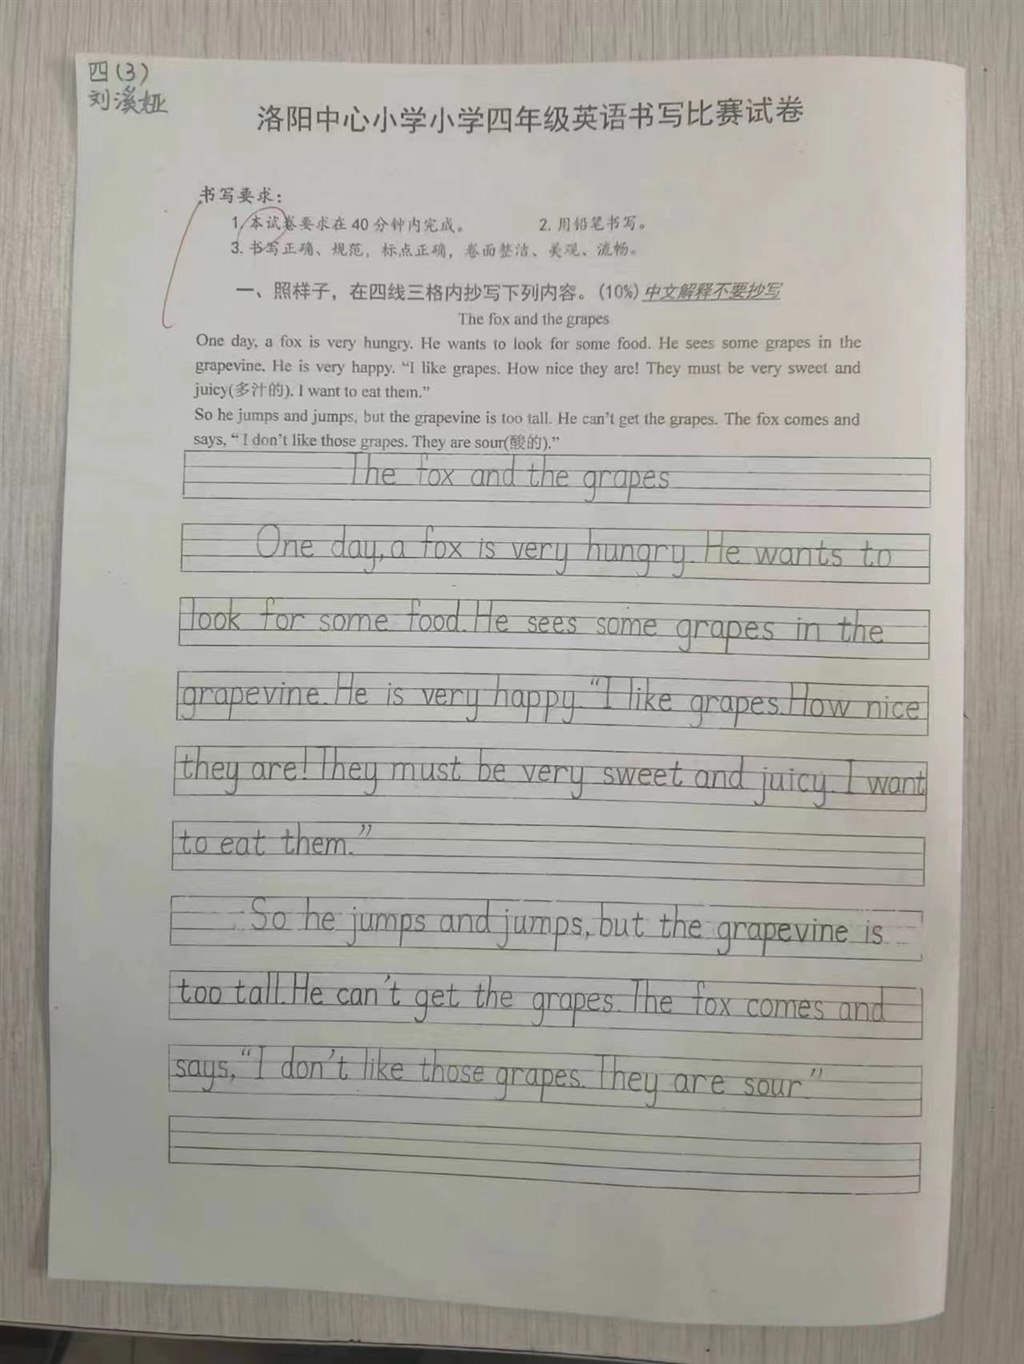 四(3)
刘溪娅
洛阳中心小学小学四年级英语书写比赛试卷
书写要求：
1. 本试卷要求在 40 分钟内完成。 2. 用铅笔书写。
3. 书写正确、规范，标点正确，卷面整洁、美观、流畅。
一、照样子，在四线三格内抄写下列内容。(10%) 中文解释不要抄写
The fox and the grapes
One day, a fox is very hungry. He wants to look for some food. He sees some grapes in the
grapevine. He is very happy. “I like grapes. How nice they are! They must be very sweet and
juicy(多汁的). I want to eat them.”
So he jumps and jumps, but the grapevine is too tall. He can’t get the grapes. The fox comes and
says, “ I don’t like those grapes. They are sour(酸的).”
The fox and the grapes
One day, a fox is very hungry. He wants to
look for some food. He sees some grapes in the
grapevine. He is very happy. “I like grapes. How nice
they are! They must be very sweet and juicy. I want
to eat them.”
So he jumps and jumps, but the grapevine is
too tall. He can’t get the grapes. The fox comes and
says, “I don’t like those grapes. They are sour.”